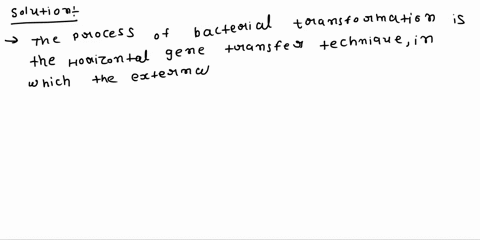 Solution:-
→ The process of bacterial transformation is
the Horizontal gene transfer technique, in
which the externa